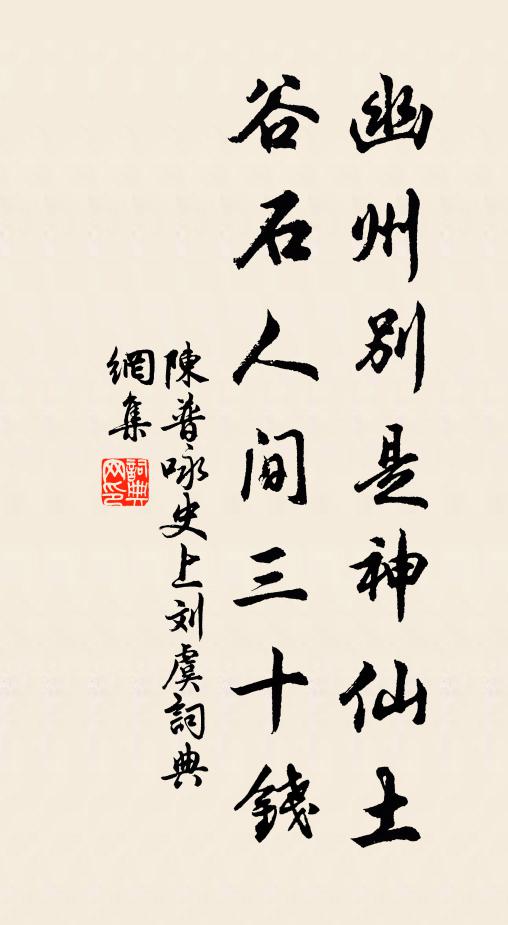 幽州别是神仙土
谷石人间三十錢
陳普咏史上刘虞詞典
網集
詞典
网印